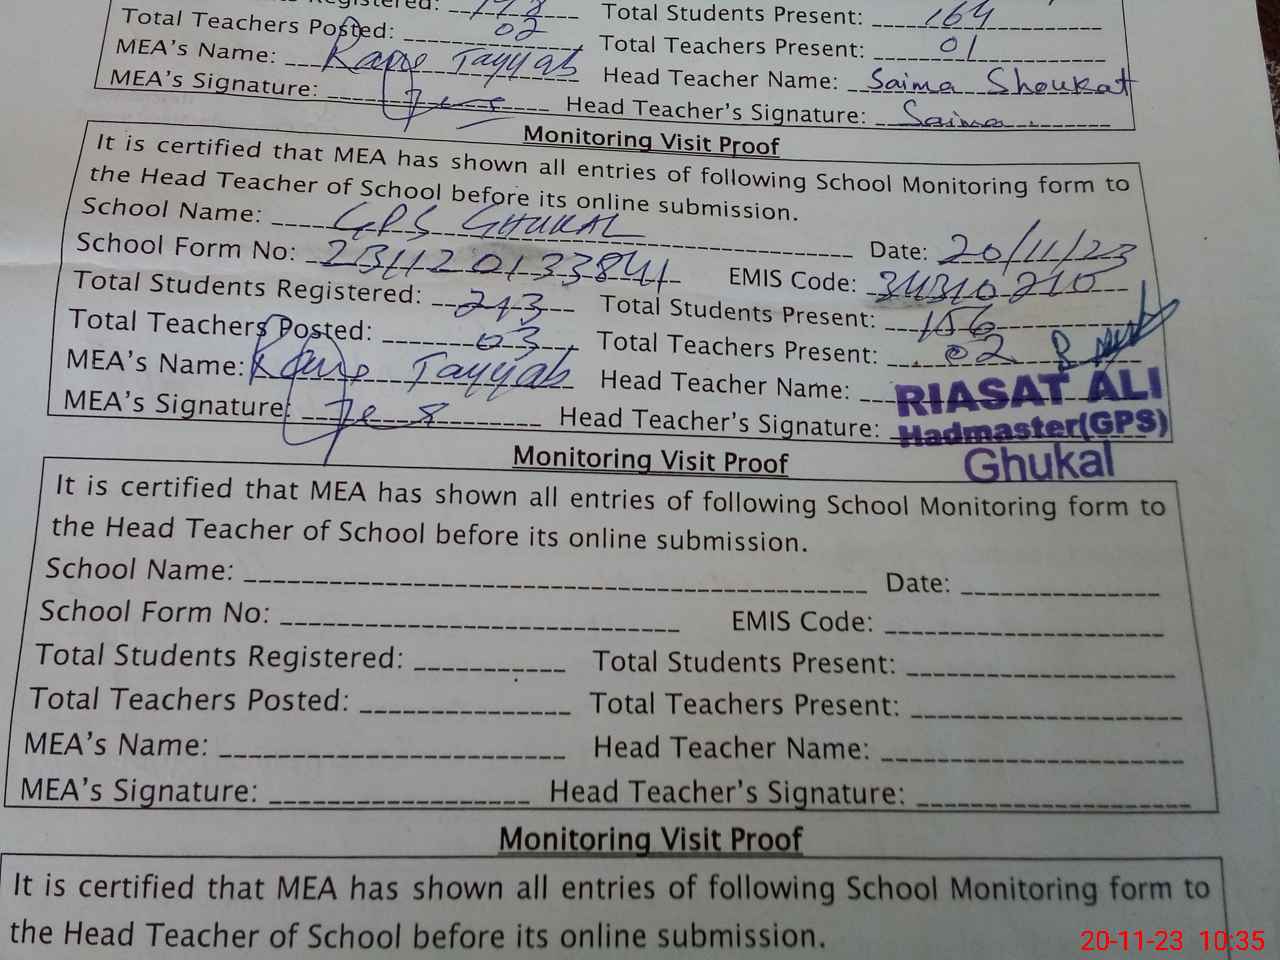 Total Students Present: 164
Total Teachers Posted: 02 Total Teachers Present: 01
MEA's Name: Tayyab Head Teacher Name: Saima Shoukat
MEA's Signature: Head Teacher's Signature: Saima
Monitoring Visit Proof
It is certified that MEA has shown all entries of following School Monitoring form to
the Head Teacher of School before its online submission.
School Name: GPS GHUKAL Date: 20/11/23
School Form No: EMIS Code: 34310210
Total Students Registered: 213 Total Students Present: 156
Total Teachers Posted: 03 Total Teachers Present: 02
MEA's Name: Tayyab Head Teacher Name:
RIASAT ALI
MEA's Signature: Head Teacher's Signature:
Hadmaster(GPS)
Ghukal
Monitoring Visit Proof
It is certified that MEA has shown all entries of following School Monitoring form to
the Head Teacher of School before its online submission.
School Name: Date:
School Form No: EMIS Code:
Total Students Registered: Total Students Present:
Total Teachers Posted: Total Teachers Present:
MEA's Name: Head Teacher Name:
MEA's Signature: Head Teacher's Signature:
Monitoring Visit Proof
It is certified that MEA has shown all entries of following School Monitoring form to
the Head Teacher of School before its online submission.
20-11-23 10:35